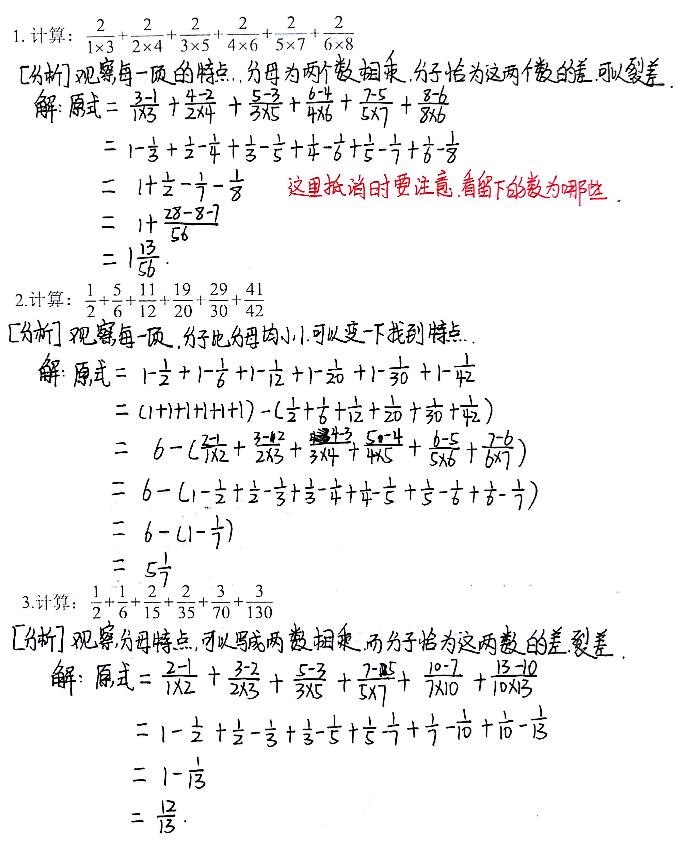 1. 计算：2/(1×3)+2/(2×4)+2/(3×5)+2/(4×6)+2/(5×7)+2/(6×8)
[分析] 观察每一项的特点，分母为两个数相乘，分子恰为这两个数的差，可以裂差.
解：原式= (3-1)/(1×3) + (4-2)/(2×4) + (5-3)/(3×5) + (6-4)/(4×6) + (7-5)/(5×7) + (8-6)/(8×6)
= 1-1/3+1/2-1/4+1/3-1/5+1/4-1/6+1/5-1/7+1/6-1/8
= 1+1/2-1/7-1/8 这里抵消时要注意，看留下的数为哪些.
= 1+(28-8-7)/56
= 1 13/56.
2.计算：1/2+5/6+11/12+19/20+29/30+41/42
[分析] 观察每一项，分子比分母均小1，可以变一下找到特点.
解：原式= 1-1/2+1-1/6+1-1/12+1-1/20+1-1/30+1-1/42
= (1+1+1+1+1+1)-(1/2+1/6+1/12+1/20+1/30+1/42)
= 6-((2-1)/(1×2)+(3-2)/(2×3)+(4-3)/(3×4)+(5-4)/(4×5)+(6-5)/(5×6)+(7-6)/(6×7))
= 6-(1-1/2+1/2-1/3+1/3-1/4+1/4-1/5+1/5-1/6+1/6-1/7)
= 6-(1-1/7)
= 5 1/7
3.计算：1/2+1/6+2/15+2/35+3/70+3/130
[分析] 观察分母特点，可以写成两数相乘，而分子恰为这两数的差，裂差.
解：原式= (2-1)/(1×2) + (3-2)/(2×3) + (5-3)/(3×5) + (7-5)/(5×7) + (10-7)/(7×10) + (13-10)/(10×13)
= 1-1/2+1/2-1/3+1/3-1/5+1/5-1/7+1/7-1/10+1/10-1/13
= 1-1/13
= 12/13.